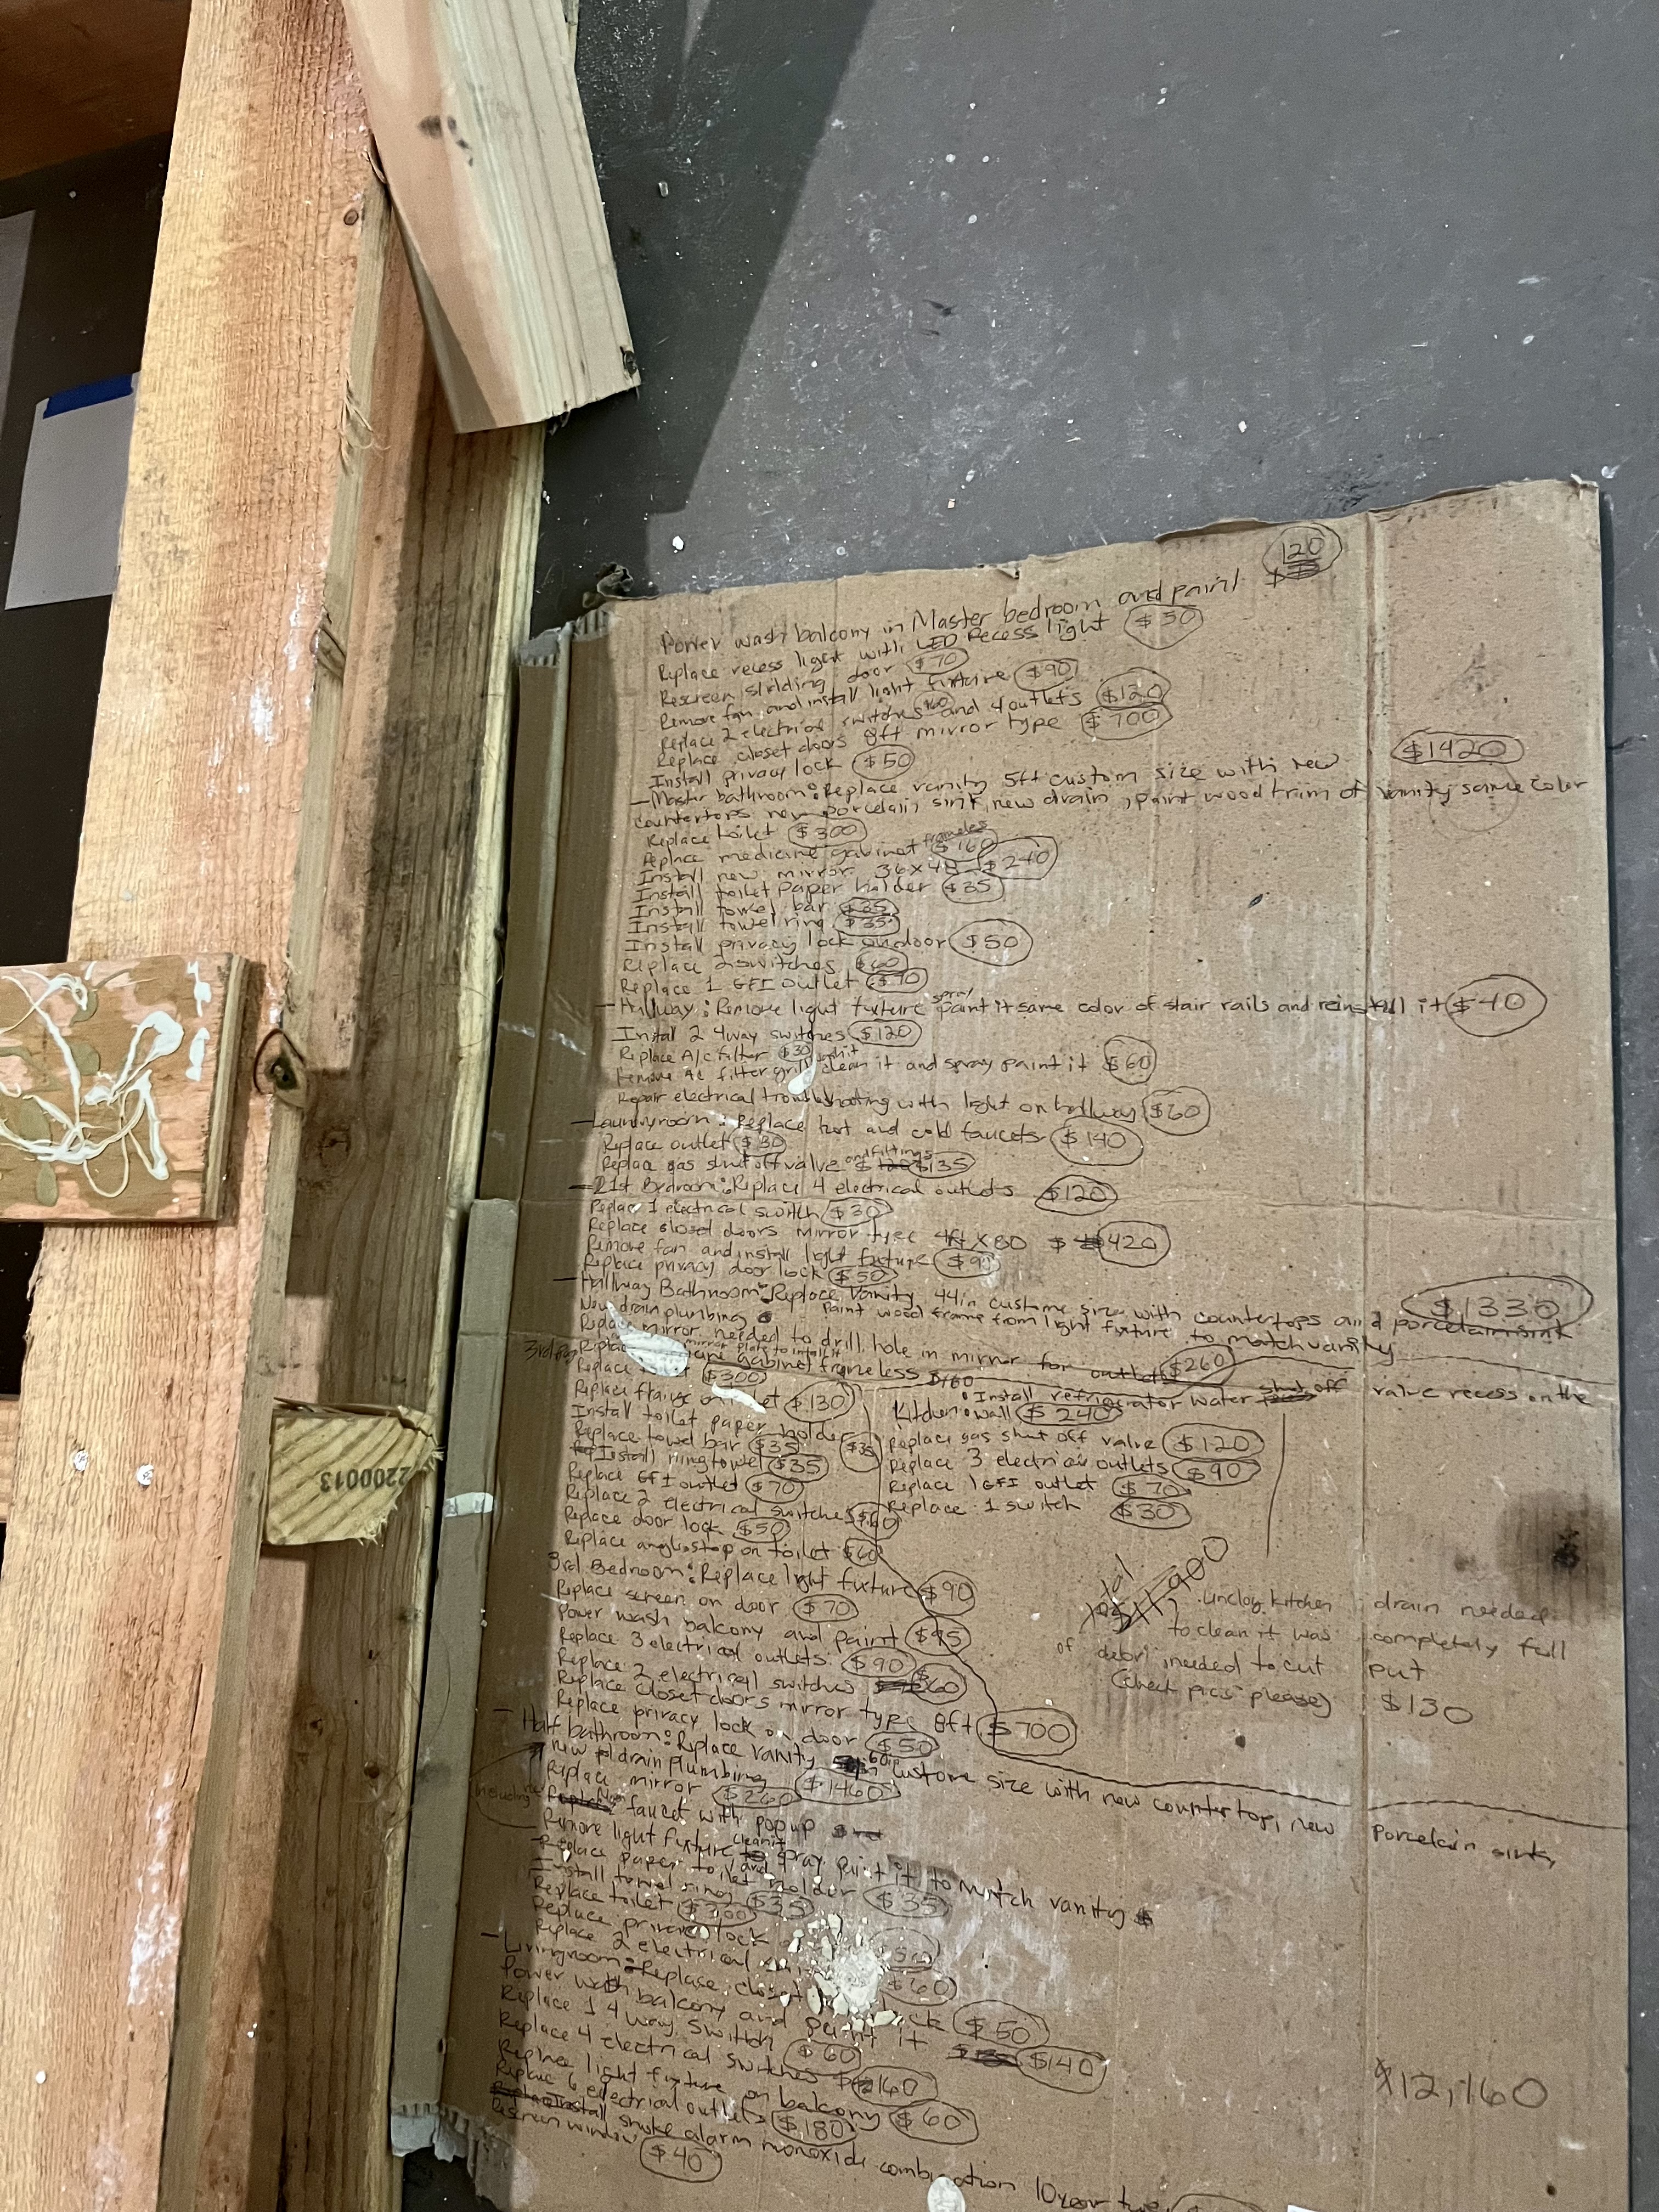 120
Power wash balcony in Master bedroom and paint $
Replace recess light with LED Recess light $50
Rescreen slidding door $70
Remove fan and install light fixture $90
Replace 2 electrical switches $60 and 4 outlets $120
Replace closet doors 8ft mirror type $700
Install privacy lock $50
$1420
- Master bathroom: Replace vanity 5ft custom size with new
countertops new porcelain sink, new drain, paint wood trim of vanity same color
Replace toilet $300
Replace medicine gabinet frameles $160
Install new mirror 36x48 $240
Install toilet paper holder $35
Install towel bar $35
Install towel ring $35
Install privacy lock on door $50
Replace 2 switches $60
Replace 1 GFI outlet $70
- Hallway: Remove light fixture spray paint it same color of stair rails and reinstall it $40
Install 2 4way switches $120
Replace A/C filter $30
Remove AC filter grill clean it and spray paint it $60
Repair electrical troubleshooting with light on hallway $60
- Laundryroom: Replace hot and cold faucets $140
Replace outlet $30
Replace gas shut off valve and fittings $135
- 21st Bedroom: Replace 4 electrical outlets $120
Replace 1 electrical switch $30
Replace closet doors mirror type 4ft x 80 $420
Remove fan and install light fixture $90
Replace privacy door lock $50
- Hallway Bathroom: Replace Vanity 44in custome size with countertops and porcelain sink $1330
New drain plumbing Paint wood frame from light fixture to match vanity
Replace mirror needed to drill hole in mirror for outlet $260
mirror plate to install it
gabinet frameless $160
Replace $300
Replace flange on $130
Install toilet paper holder $35
Replace towel bar $35
Install ring towel $35
Replace GFI outlet $70
Replace 2 electrical switches $60
Replace door lock $50
Replace angle stop on toilet $60
Kitchen: Install refrigerator water shut off valve recess on the
wall $240
Replace gas shut off valve $120
Replace 3 electric outlets $90
Replace 1 GFI outlet $70
Replace 1 switch $30
total
unclog kitchen drain needed
to clean it was completely full
of debri, needed to cut put
(check pics please) $130
3rd Bedroom: Replace light fixture $90
Replace screen on door $70
Power wash balcony and paint $95
Replace 3 electrical outlets $90
Replace 2 electrical switches $60
Replace closet doors mirror type 8ft $700
Replace privacy lock on door $50
- Half bathroom: Replace vanity 60in custome size with new countertop, new porcelain sink,
new drain plumbing $1460
Replace mirror $260
including new faucet with pop up
Remove light fixture clean it and spray paint it to match vanity $
Replace paper toilet holder $35
Install towel ring $35
Replace toilet $300
Replace privacy lock
Replace 2 electrical $60
- Livingroom: Replace closet $50
Power wash balcony and paint it $140
Replace 1 4 way switch $60
Replace 4 electrical switches $160
Replace light fixture on balcony $60
Replace 6 electrical outlets $180
Install smoke alarm monoxide combination 10 year type
Rescreen window $40
$12,160
2200013